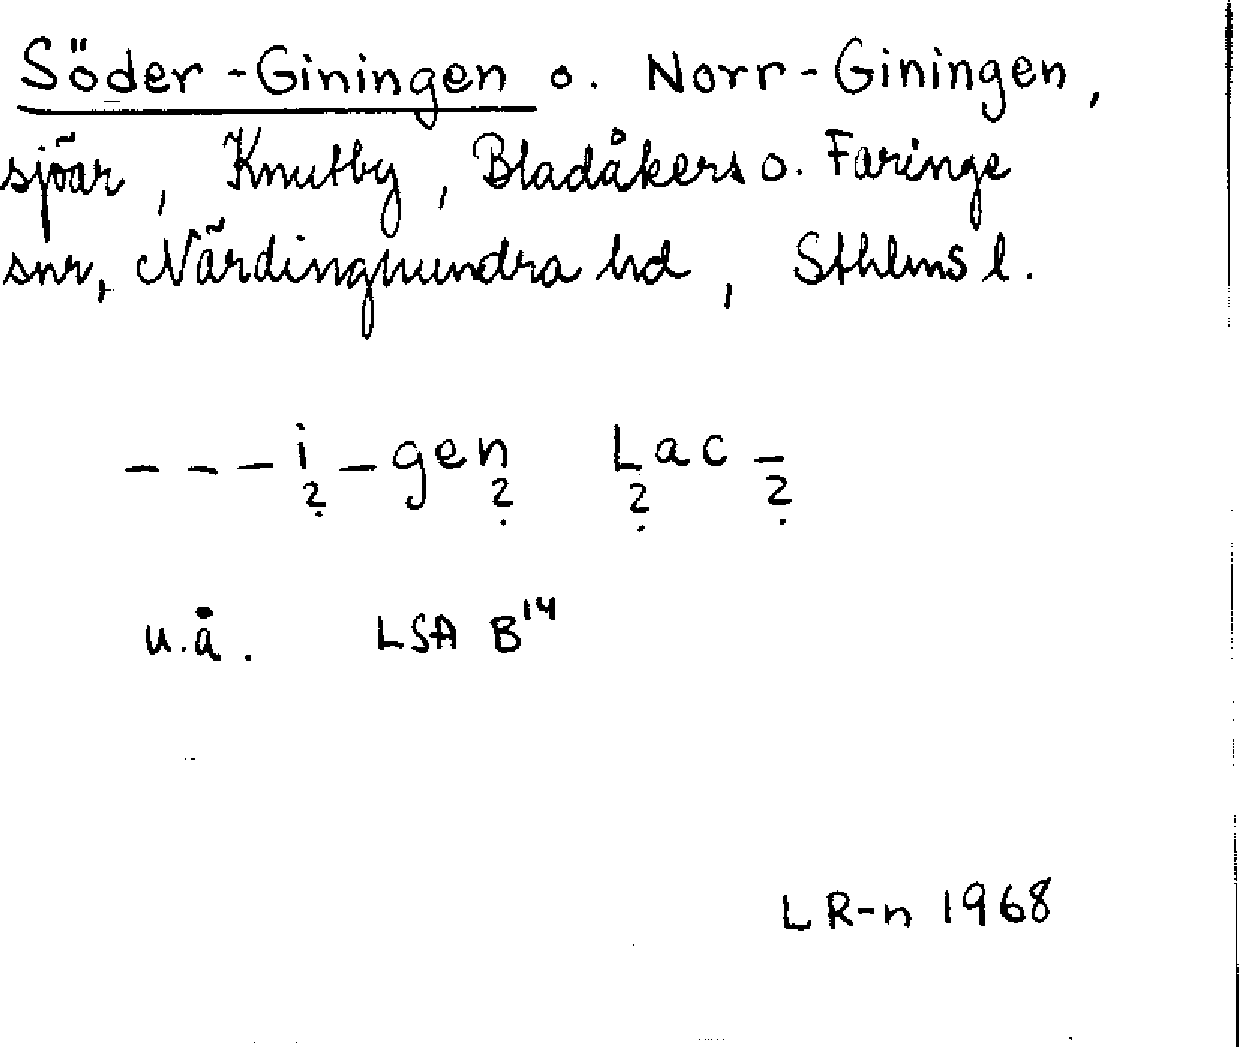 Söder-Giningen o. Norr-Giningen,
sjöar, Knutby, Bladåkers o. Faringe
snr, Närdinghundra hd, Sthlms l.
- - - i - gen Lac -
? ? ? ?
u.å. LSA B14
L R-n 1968